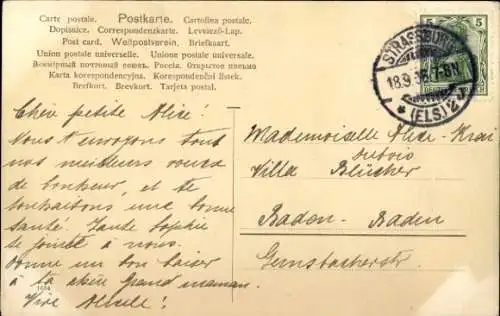 Carte postale. Postkarte. Cartolina postale.
Dopisnice. Correspondenzkarte. Levelező-Lap.
Post card. Weltpostverein. Briefkaart.
Union postale universelle. Unione postale universale.
Всемірный почтовый союзъ. Россія. Открытое письмо
Karta korespondencyjna. Korespondenční lístek.
Brefkort. Brevkort. Tarjeta postal.
5 5
STRASSBURG
18.9. 7-8N
* (ELS.) 2
Chère petite Alice!
Nous t'envoyons tous
nos meilleurs voeux
de bonheur, et te
souhaisons une bonne
santé. Tante Sophie
se joint à nous.
Donne un bon baiser
à ta chère Grand'maman.
Vive
Mademoiselle Alice
Villa Blücher
Baden-Baden
Gernsbacherstr.